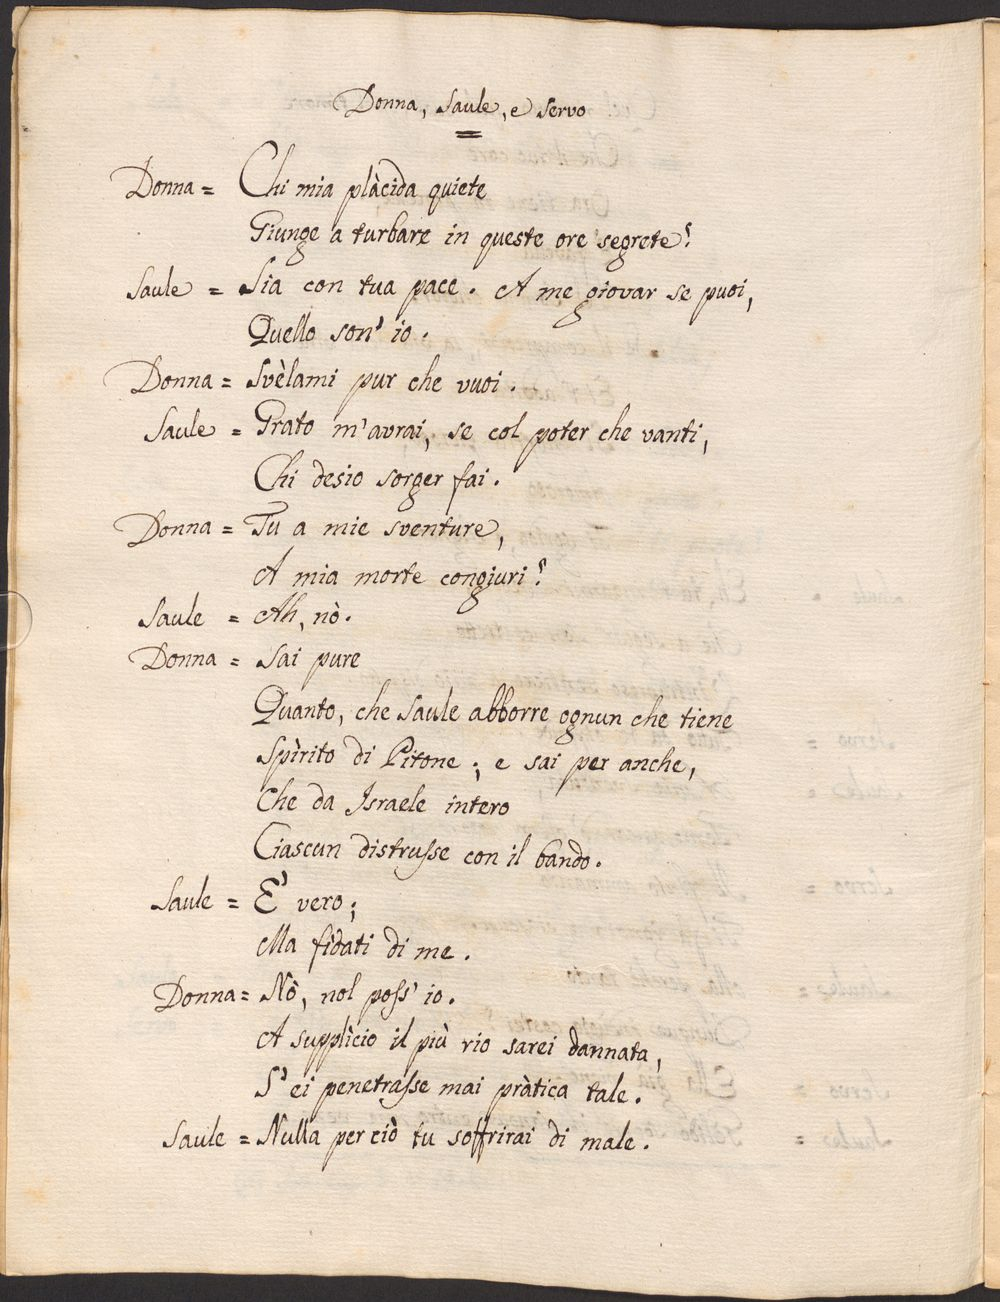 Donna, Saule, e Servo
Donna = Chi mia plàcida quiete
Giunge a turbare in queste ore segrete?
Saule = Sia con tua pace. A me giovar se puoi,
Quello son' io.
Donna = Svèlami pur che vuoi.
Saule = Grato m'avrai, se col poter che vanti,
Chi desio sorger fai.
Donna = Tu a mie sventure,
A mia morte congiuri?
Saule = Ah, nò.
Donna = Sai pure
Quanto, che Saule abborre ognun che tiene
Spìrito di Pitone; e sai per anche,
Che da Israele intero
Ciascun distrusse con il bando.
Saule = E' vero;
Ma fìdati di me.
Donna = Nò, nol poss' io.
A supplìcio il più rio sarei dannata,
S' ei penetrasse mai pràtica tale.
Saule = Nulla perciò tu soffrirai di male.